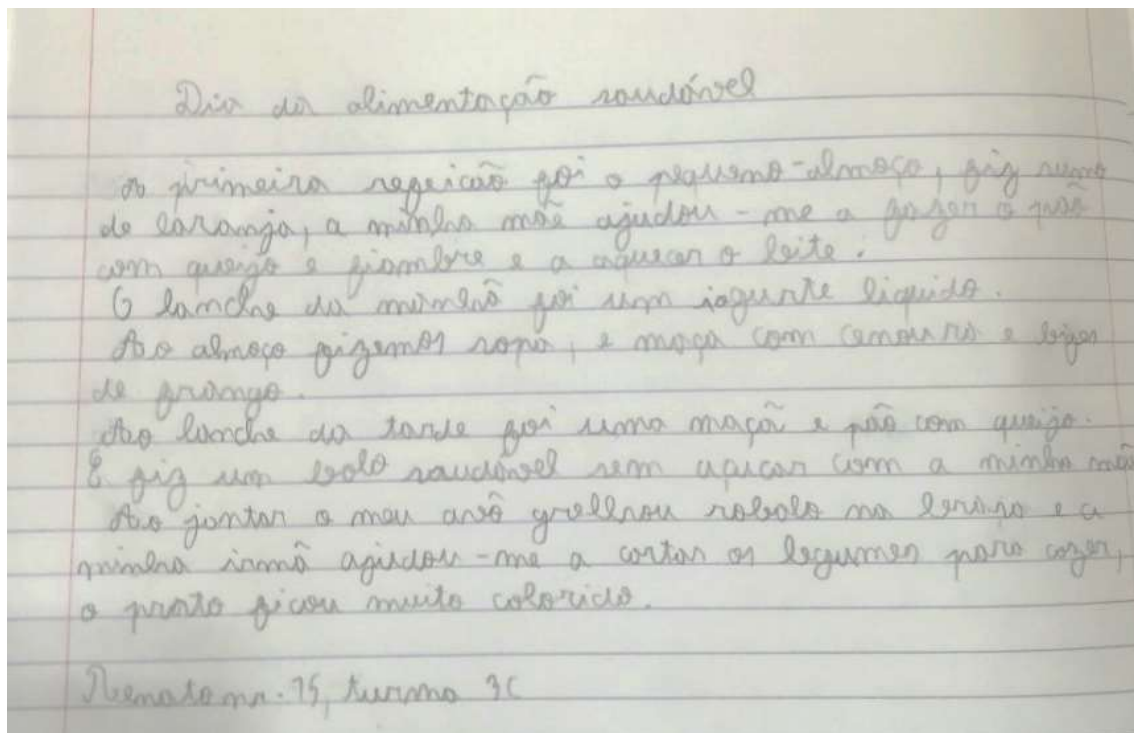 Dia da alimentação saudável
A primeira refeicão foi o pequeno-almoço, fiz sumo
de laranja, a minha mãe ajudou-me a fazer o pão
com queijo e fiambre e a aquecer o leite.
O lanche da manhã foi um iogurte liquido.
Ao almoço fizemos sopa, e massa com cenoura e bifes
de frango.
Ao lanche da tarde foi uma maçã e pão com queijo.
E fiz um bolo saudável sem açucar com a minha mãe
Ao jantar o meu avô grelhou robalo na brasa e a
minha irmã ajudou-me a cortar os legumes para cozer,
o prato ficou muito colorido.
Renato nr. 15, turma 3C